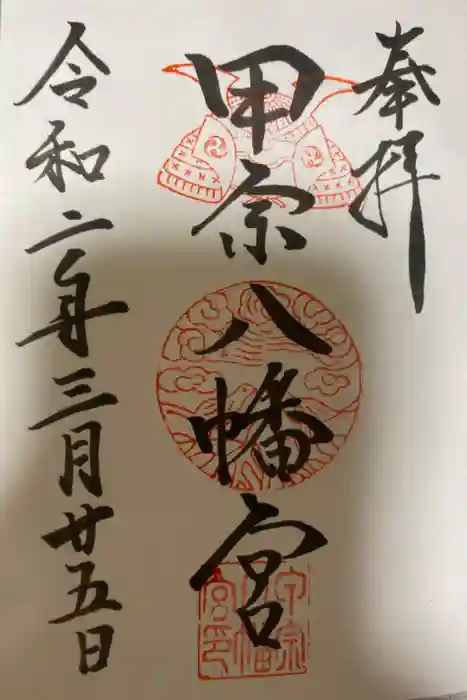 奉拝
甲宗八幡宮
令和二年三月廿五日
甲宗
八幡
宮印